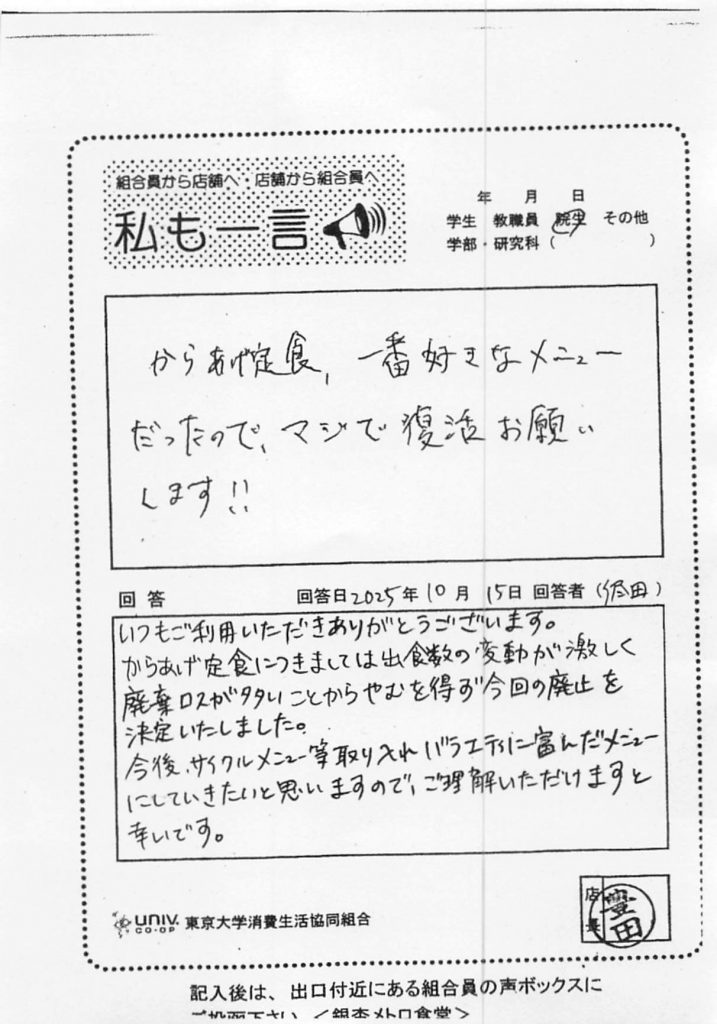 組合員から店舗へ・店舗から組合員へ
私も一言
年 月 日
学生 教職員 院生 その他
学部・研究科( )
からあげ定食、一番好きなメニュー
だったので、マジで復活お願い
します!!
回答 回答日2025年10月15日 回答者( 田)
いつもご利用いただきありがとうございます。
からあげ定食につきましては出食数の変動が激しく
廃棄ロスが多いことからやむを得ず今回の廃止を
決定いたしました。
今後、サイクルメニュー等取り入れバラエティに富んだメニュー
にしていきたいと思いますので、ご理解いただけますと
幸いです。
UNIV. CO-OP 東京大学消費生活協同組合
店長 豊田
記入後は、出口付近にある組合員の声ボックスに
ご投函下さい <銀杏メトロ食堂>